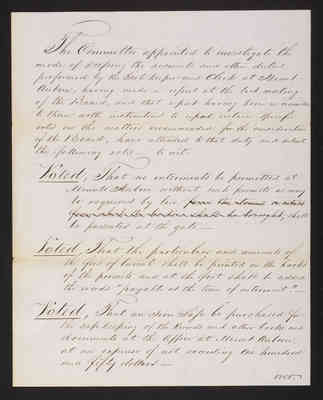 The Committee appointed to investigate the
mode of keeping the accounts and other duties
performed by the Gate Keeper and Clerk at Mount
Auburn, having made a report at the last meeting
of the Board, and that report having been recommitted
to them with instructions to report certain specific
votes on the matters recommended for the consideration
of the Board, have attended to that duty and submit
the following votes — to wit.
Voted, That no interments be permitted at
Mount Auburn without such permits as may
be required by law from the town or
from which the bodies shall be brought, shall
be presented at the gate —
Voted, That the particulars and amount of
the fees of burial shall be printed on the backs
of the permits and at the foot shall be added
the words "payable at the time of interment" —
Voted, That an Iron Safe be purchased for
the safe keeping of the Records and other books and
documents at the Office at Mount Auburn
at an expense of not exceeding one hundred
and fifty dollars —